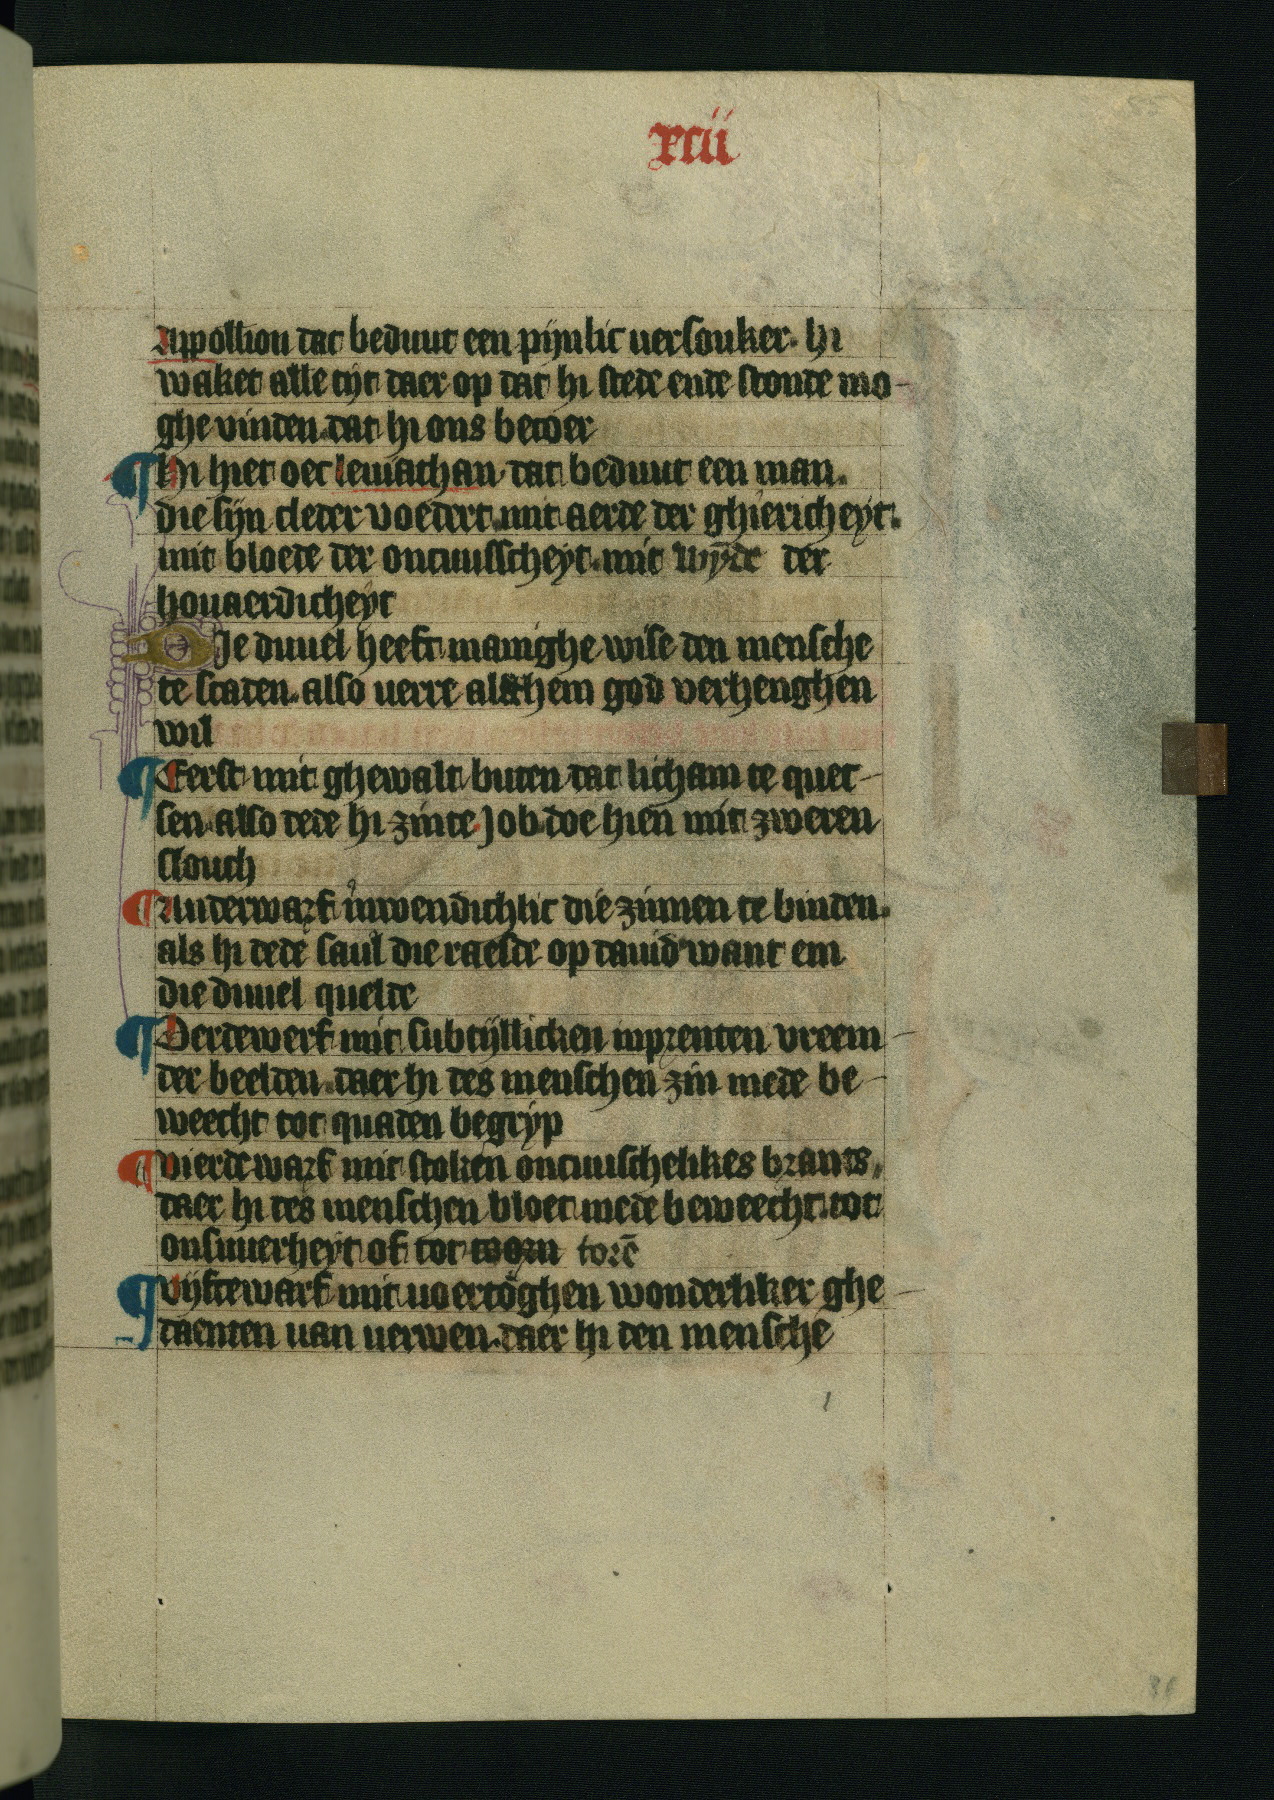 xcii
Appollion dat beduut een pijnlic uersouker. hi
waket alle tijt daer op dat hi stede ende stonde mo-
ghe vinden. dat hi ons becoer
¶ Hi hiet oec leuiathan. dat beduut een man.
die sijn cleder voedert. mit aerde der ghiericheyt.
mit bloede der oncuusscheyt. mit wijde der
houaerdicheyt
Die duuel heeft manighe wise den mensche
te scaden. also uerre als hem god verhenghen
wil
¶ Eerst mit ghewalt buten dat licham te quet-
sen. also dede hi zinte Job doe hien mit zweren
slouch
¶ Anderwarf inwendichlic die zinnen te binden.
als hi dede saul die raesde op dauid want em
die duuel quelde
¶ Derdewerf mit subtijllicken inprenten vreem-
der beelden. daer hi des menschen zin mede be-
weecht tot quaden begrijp
¶ vierdewarf mit stoken oncuuschelikes brants,
daer hi des menschen bloet mede beweecht. tot
onsuuerheyt of tot toorn torē
¶ vijftewarf mit uoertoghen wonderliker ghe-
daenten uan uerwen. daer hi den mensche